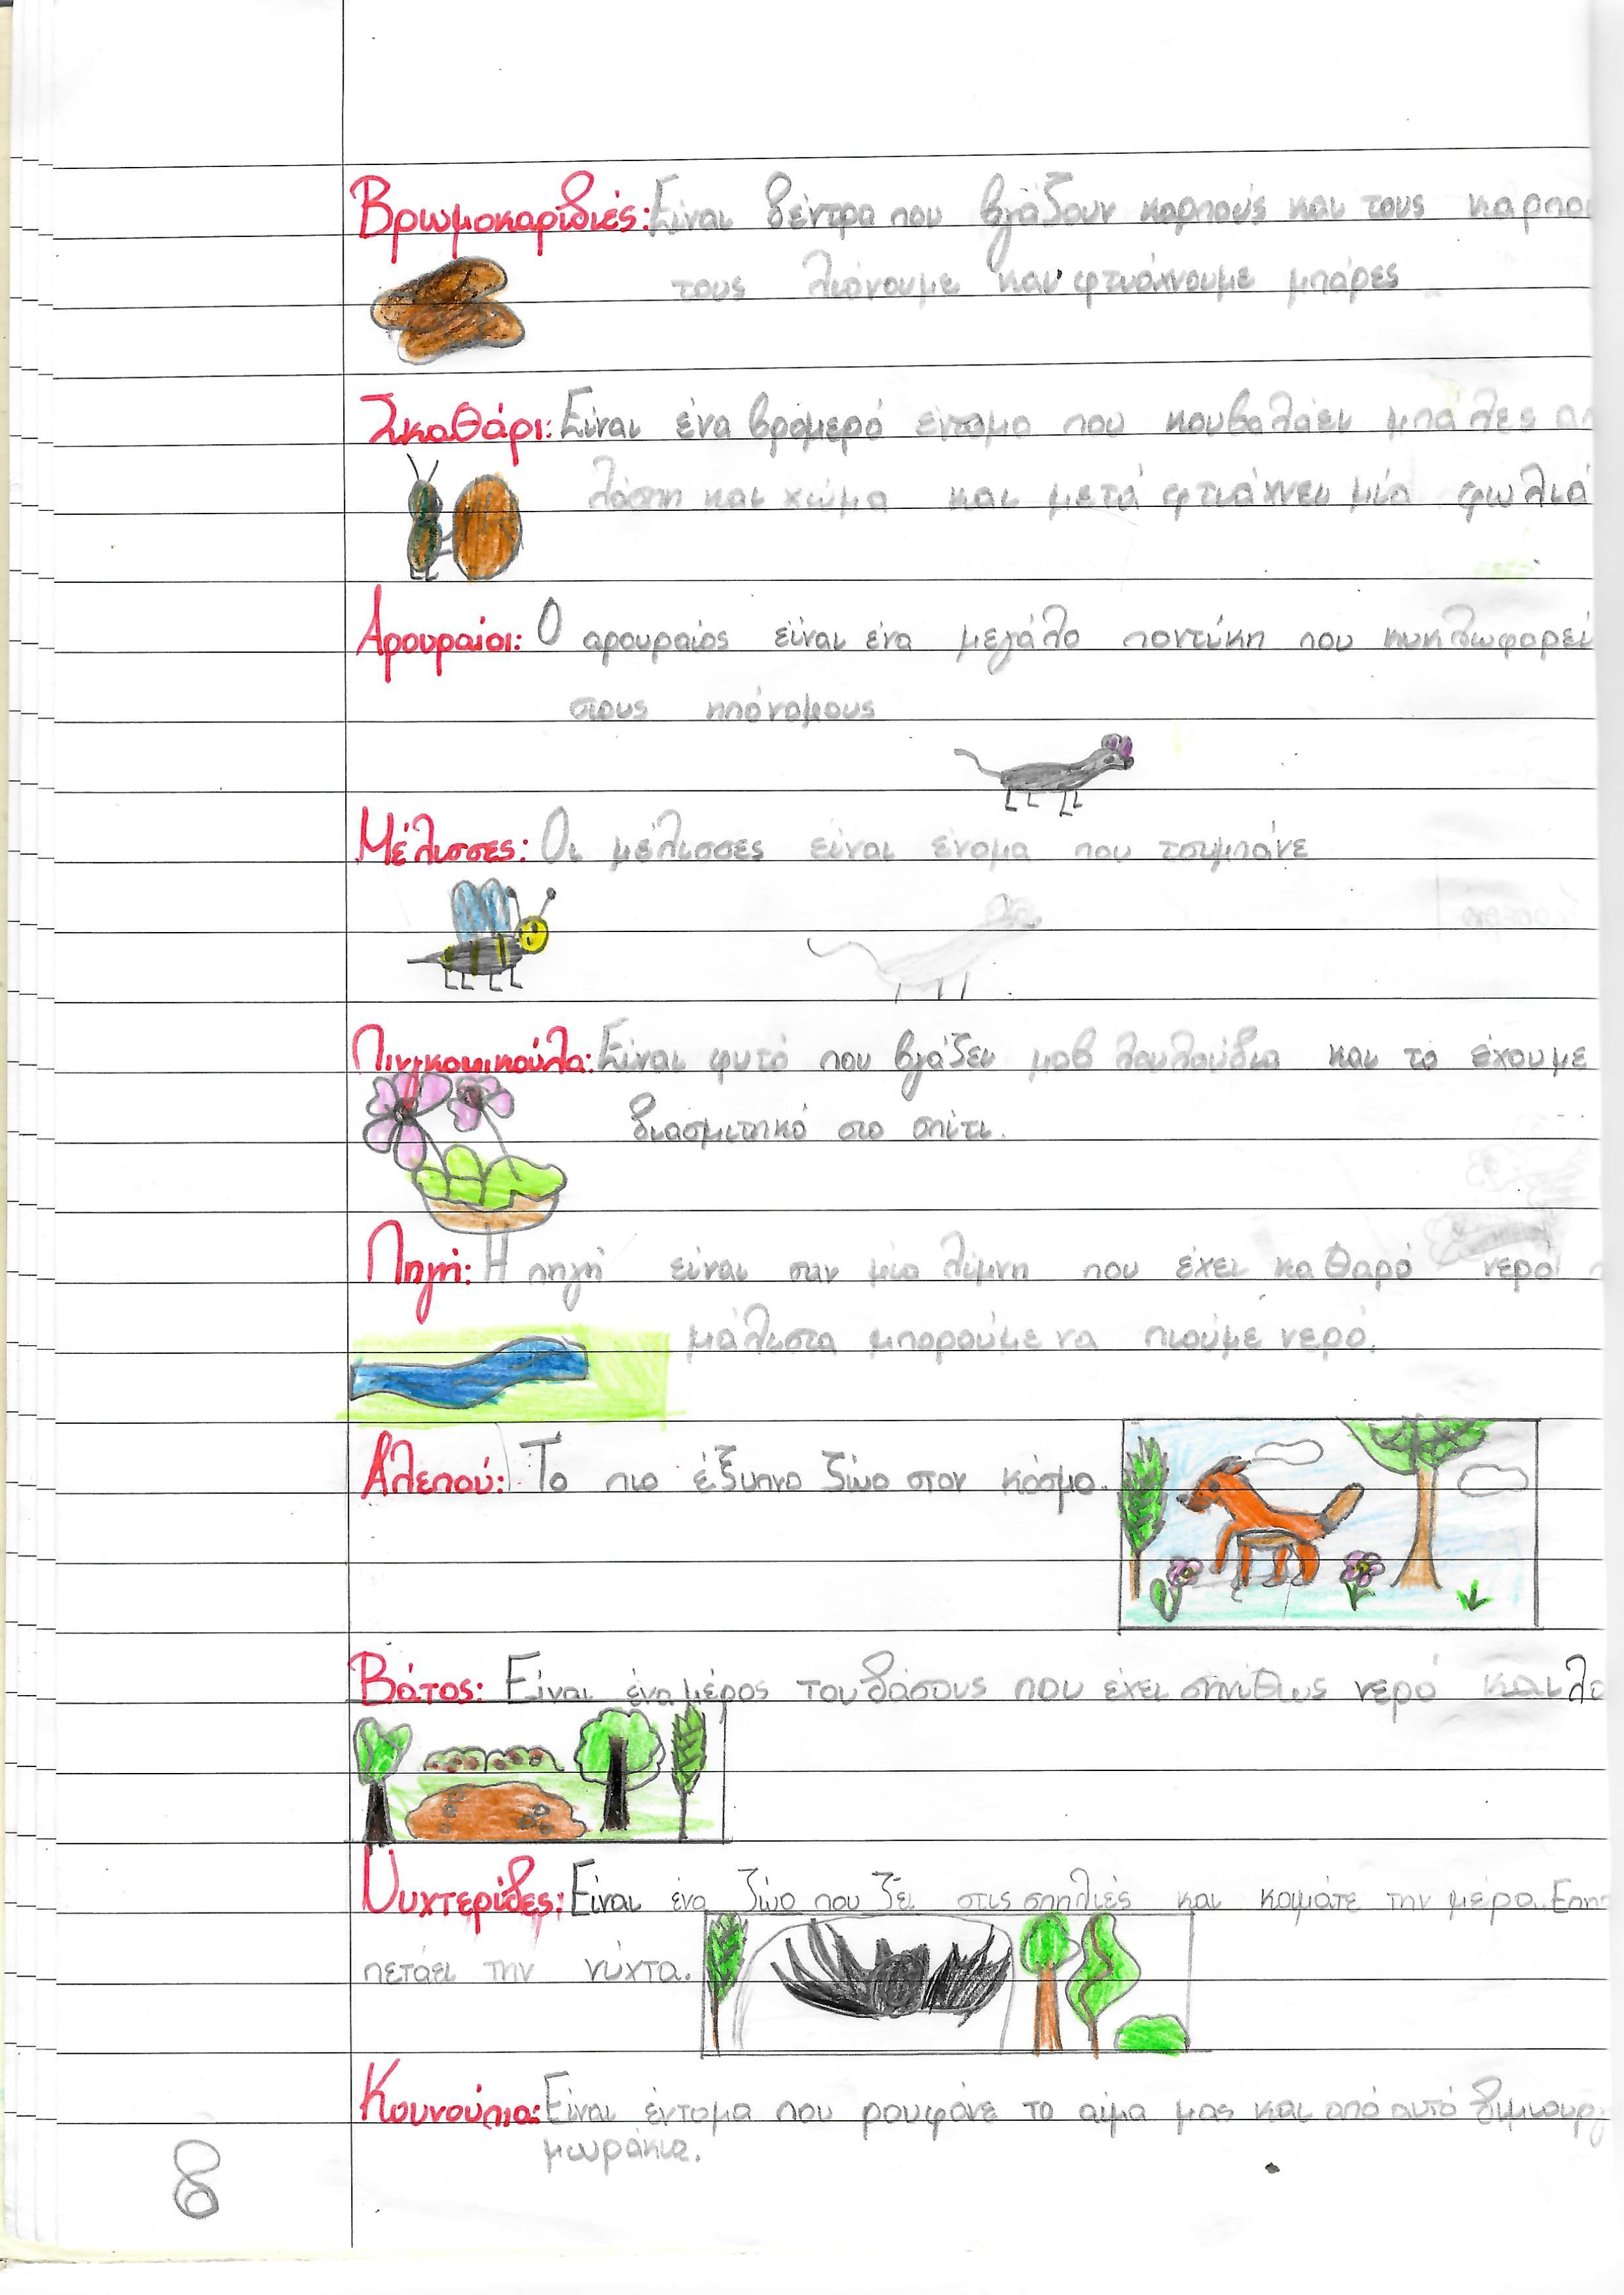 Βρωμοκαριδιές: Είναι δέντρα που βγάζουν καρπούς και τους καρπο
τους λιόνουμε και φτιάχνουμε μπάρες
Σκαθάρι: Είναι ένα βρομερό έντομο που κουβαλάει μπάλες απ
λάσπη και χώμα και μετά φτιάχνει μία φωλιά
Αρουραίοι: Ο αρουραίος είναι ένα μεγάλο ποντίκη που κυκλωφορεί
στους υπόνομους
Μέλισσες: Οι μέλισσες είναι ένομα που τσιμπάνε
Είναι φυτό που βγάζει μοβ λουλούδια και το έχουμε
διασμιτηκό στο σπίτι.
Πηγή: Η πηγή είναι σαν μία λίμνη που έχει καθαρό νερό
μάλιστα μπορούμε να πιούμε νερό.
Αλεπού: Το πιο έξυπνο ζώο στον κόσμο.
Βάτος: Είναι ένα μέρος του δάσους που έχει σηνίθως νερό και λα
Νυχτερίδες: Είναι ένα ζώο που ζεί στις σπηλιές και κοιμάτε την μέρα.
πετάει την νύχτα.
Κουνούπια: Είναι έντομα που ρουφάνε το αίμα μας και από αυτό διμιουργ
μωράκια.
8